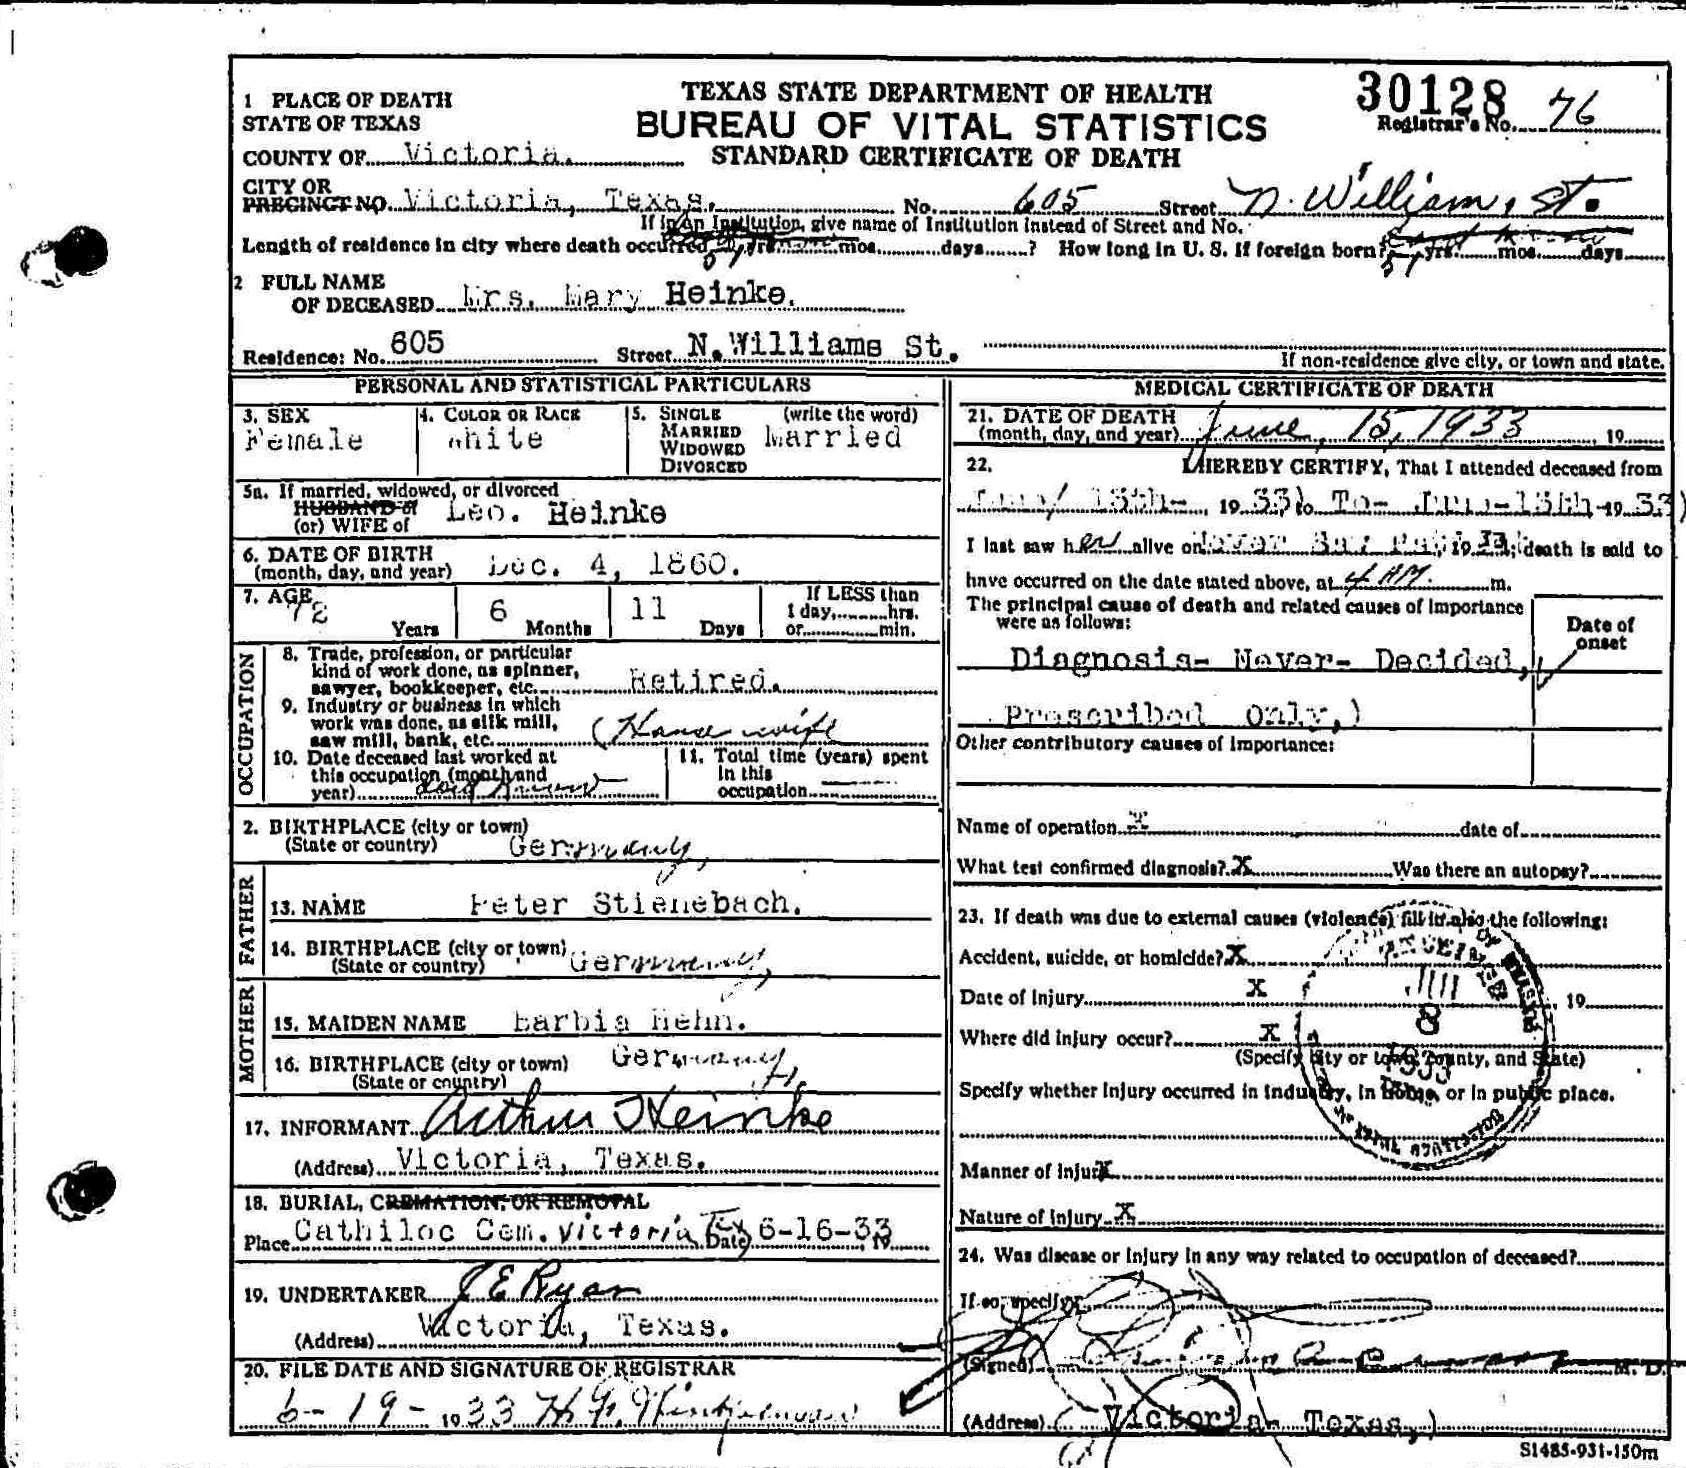 TEXAS STATE DEPARTMENT OF HEALTH
BUREAU OF VITAL STATISTICS
STANDARD CERTIFICATE OF DEATH
30128
Registrar's No. 76
1 PLACE OF DEATH
STATE OF TEXAS
COUNTY OF Victoria.
CITY OR
PRECINCT NO. Victoria, Texas. No. 605 Street N. William, St.
If in an Institution, give name of Institution instead of Street and No.
Length of residence in city where death occurred 51 yrs. mos. days ? How long in U. S. if foreign born? 51 yrs. mos. days
2 FULL NAME
OF DECEASED Mrs. Mary Heinke.
Residence: No. 605 Street N. Williams St.
If non-residence give city, or town and state.
PERSONAL AND STATISTICAL PARTICULARS
3. SEX
Female
4. COLOR OR RACE
White
5. SINGLE
MARRIED
WIDOWED
DIVORCED
(write the word)
Married
5a. If married, widowed, or divorced
HUSBAND of
(or) WIFE of Leo. Heinke
6. DATE OF BIRTH
(month, day, and year) Dec. 4, 1860.
7. AGE
72 Years 6 Months 11 Days
If LESS than
1 day, hrs.
or min.
OCCUPATION
8. Trade, profession, or particular
kind of work done, as spinner,
sawyer, bookkeeper, etc. Retired.
9. Industry or business in which
work was done, as silk mill,
saw mill, bank, etc. (House wife
10. Date deceased last worked at
this occupation (month and
year)
11. Total time (years) spent
in this
occupation
2. BIRTHPLACE (city or town)
(State or country) Germany,
FATHER
13. NAME Peter Stienebach.
14. BIRTHPLACE (city or town)
(State or country) Germany,
MOTHER
15. MAIDEN NAME Barbia Hehn.
16. BIRTHPLACE (city or town) Germany,
(State or country)
17. INFORMANT Arthur Heinke
(Address) Victoria, Texas.
18. BURIAL, CREMATION, OR REMOVAL
Place Cathiloc Cem. Victoria Tex Date 6-16-33 19
19. UNDERTAKER J E Ryan
(Address) Victoria, Texas.
20. FILE DATE AND SIGNATURE OF REGISTRAR
6-19- 1933 H.
MEDICAL CERTIFICATE OF DEATH
21. DATE OF DEATH
(month, day, and year) June, 15, 1933, 19
22. I HEREBY CERTIFY, That I attended deceased from
15th-, 1933) to To- June-15th-1933)
I last saw her alive on Never 1933; death is said to
have occurred on the date stated above, at 4 AM. m.
The principal cause of death and related causes of importance
were as follows:
Date of
onset
Diagnosis- Never- Decided,
Prescribed Only,)
Other contributory causes of importance:
Name of operation date of
What test confirmed diagnosis? X Was there an autopsy?
23. If death was due to external causes (violence) fill in also the following:
Accident, suicide, or homicide? X
Date of injury X , 19
Where did injury occur? X
(Specify city or town, county, and State)
Specify whether injury occurred in industry, in home, or in public place.
Manner of injury X
Nature of injury X
24. Was disease or injury in any way related to occupation of deceased?
If so, specify
(Signed) M. D.
(Address) ( Victoria- Texas,)
RECEIVED
JUL
8
1933
S1485-931-150m